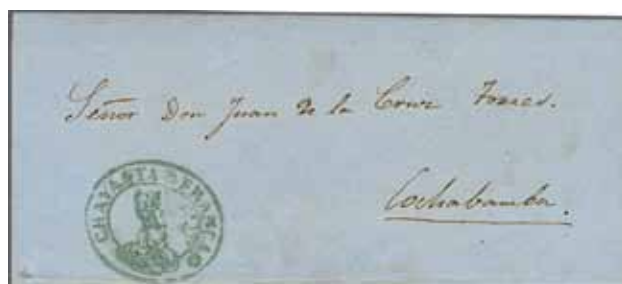 Señor Don Juan de la Cruz Torres.
Cochabamba.
CHAYANTA FRANCO